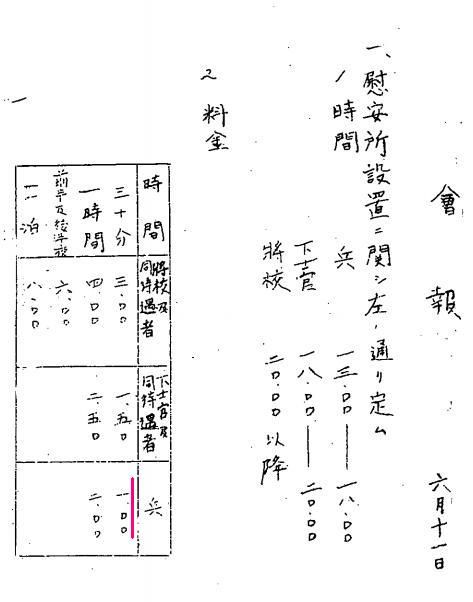 會報 六月十一日
一、慰安所設置ニ関シ左ノ通リ定ム
1 時間
兵 一三・〇〇 ― 一八・〇〇
下士官 一八・〇〇 ― 二〇・〇〇
將校 二〇・〇〇 以降
2 料金
時間 將校及同待遇者 下士官及同待遇者 兵
三十分 三・〇〇 一・五〇 一・〇〇
一時間 四・〇〇 二・五〇 二・〇〇
前半夜後半夜 六・〇〇
一泊 八・〇〇